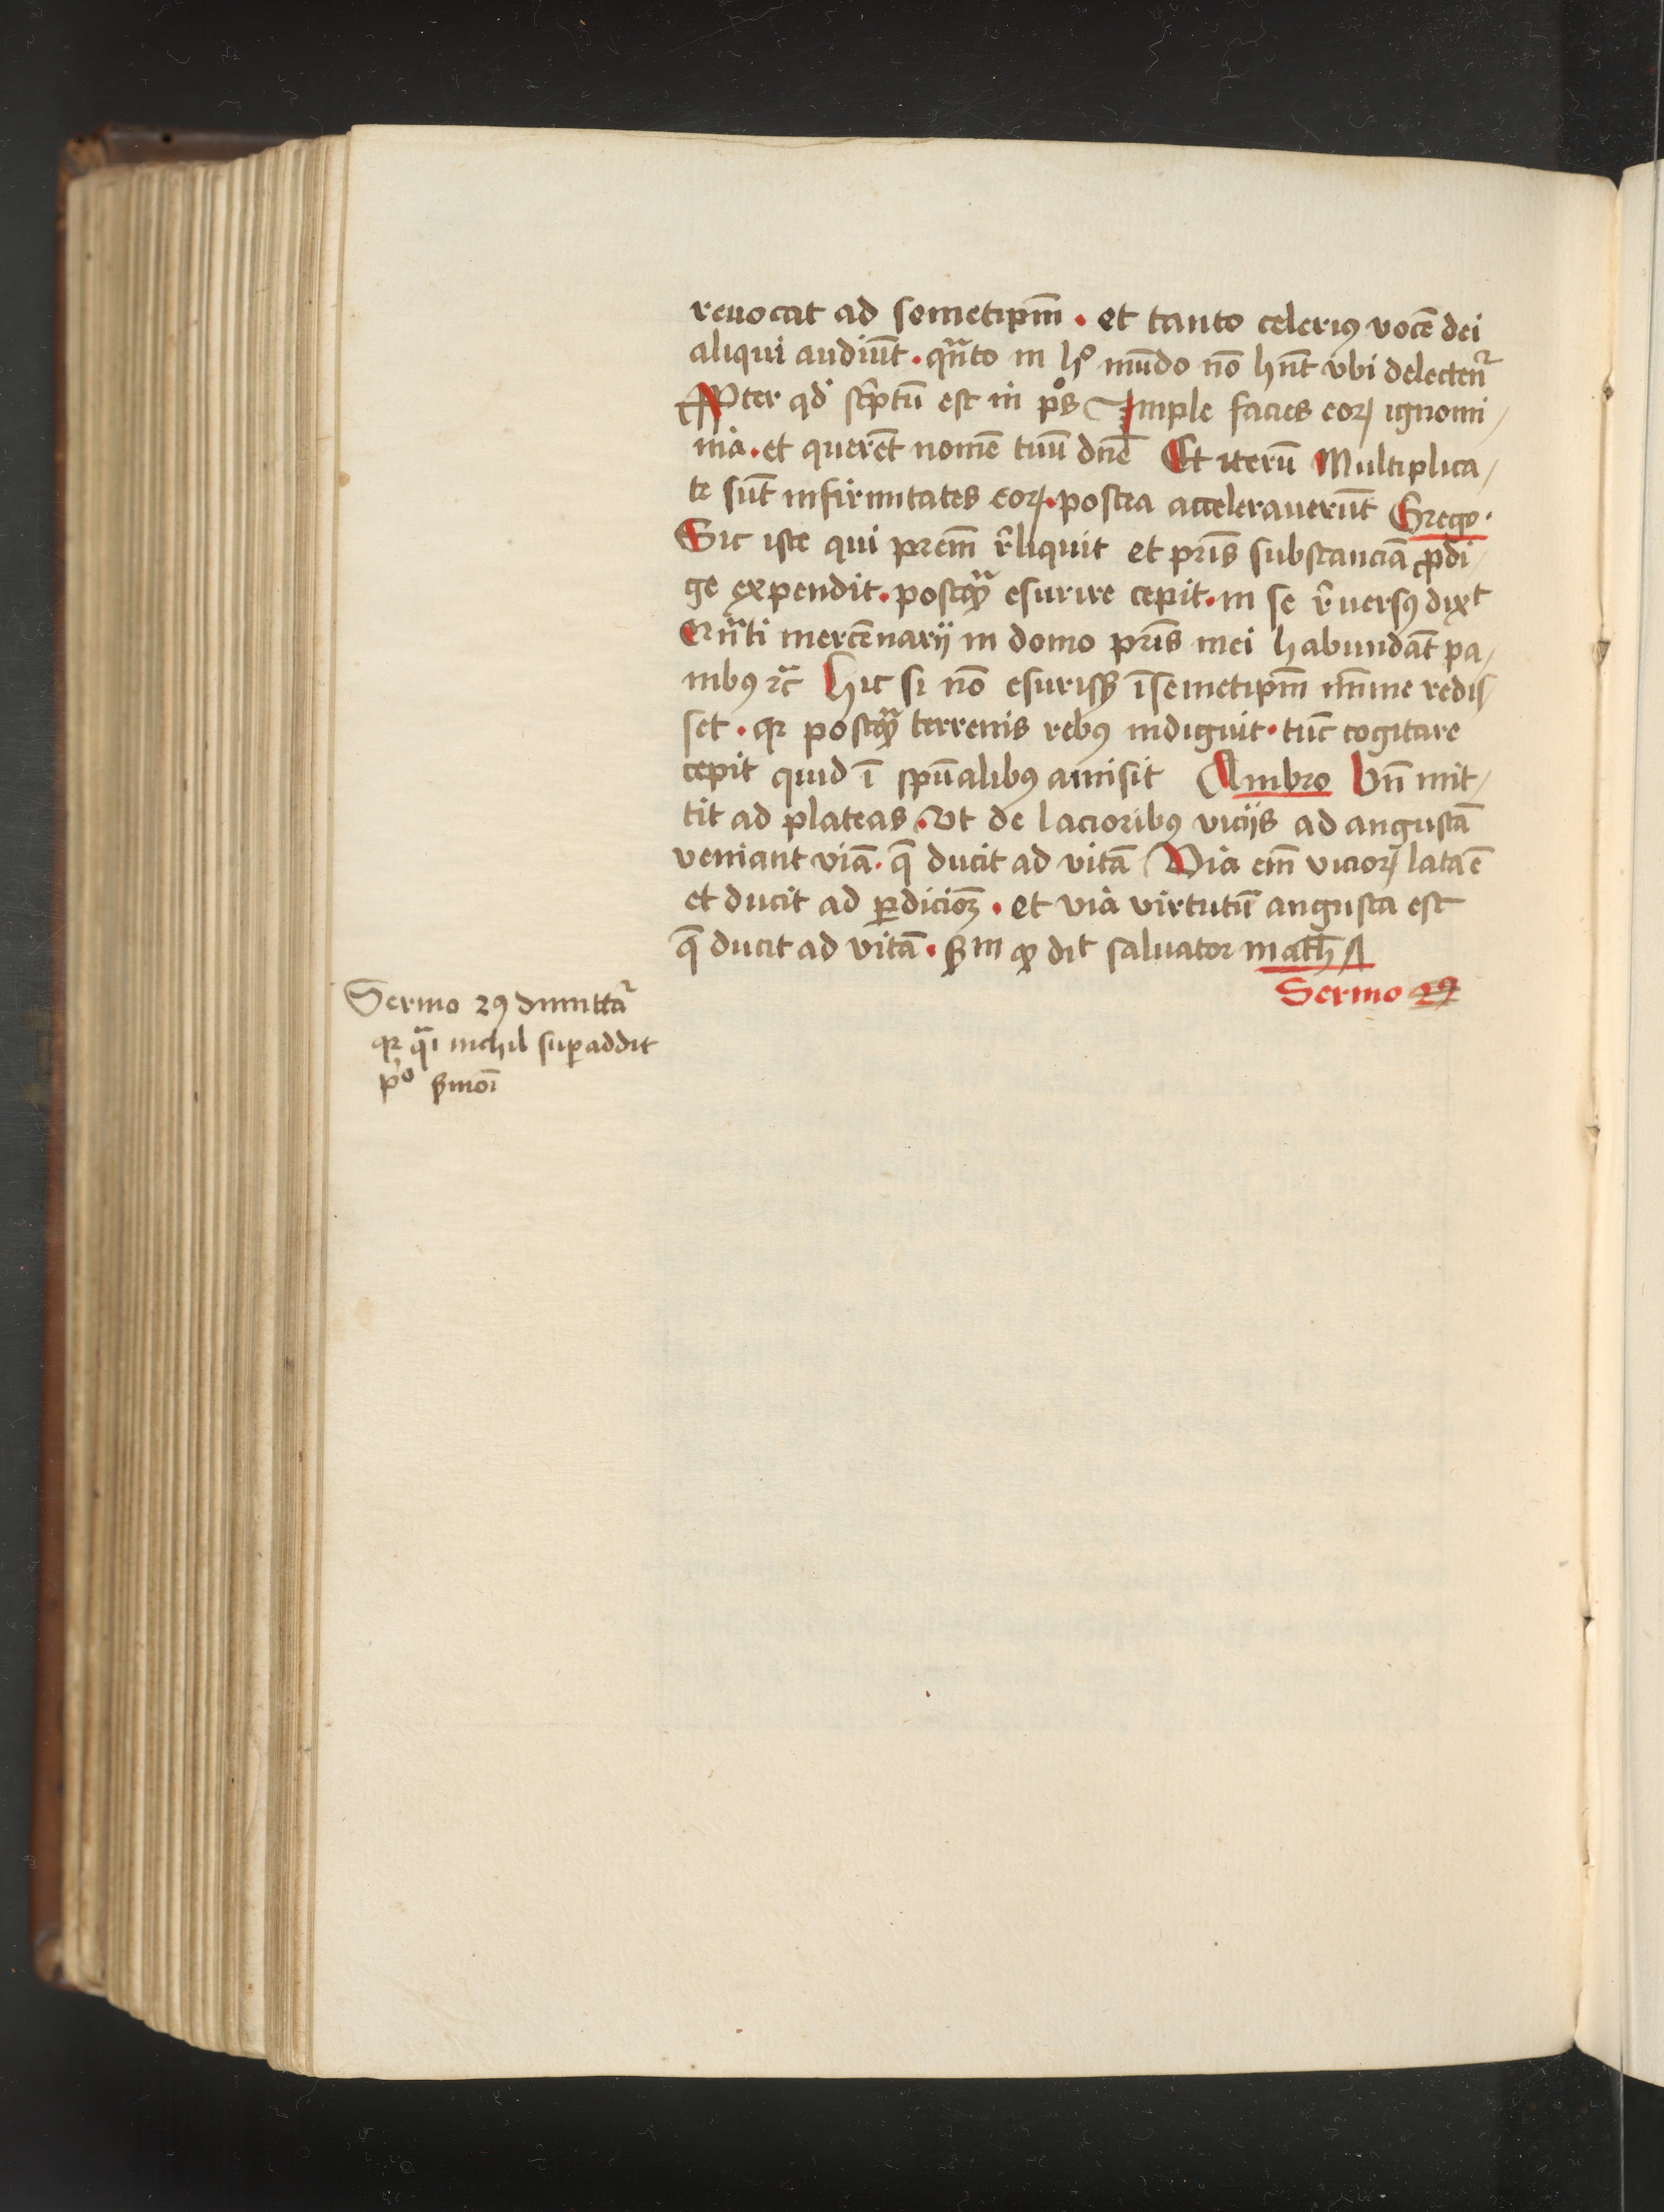 reuocat ad semetip̄m · et tanto celeriꝰ vocē dei
aliqui audiūt · qn̄to in hͦ mūdo nō hn̄t vbi delectenᷣ
Ꝓpter qd̕ sc̕ptū est in pͦs Imple facies eoꝝ ignomi/
nia · et querēt nomē tuū dn̄e Et iterū Multiplica/
te sūt infirmitates eoꝝ · postea accelerauerūt Grego·
Sic iste qui prēm r̕liquit et pr̄is substanciā ꝓdi/
ge expendit · postꝙᷓ esurire cepit · in se r̕uersꝰ dixᵗ
Qn̄ti mercēnarij in domo pr̄is mei habundāt pa/
nibꝰ ⁊c̄ Hic si nō esurisꝫ ī semetip̄m mīme redis/
set · qꝛ postꝙᷓ terrenis rebꝰ indiguit · tūc cogitare
cepit quid ī spūalibꝰ amisit Ambro Vn̄ mit/
tit ad plateas · Vt de lacioribꝰ vicijs ad angustā
veniant viā · q̄ ducit ad vitā Via em̄ vicioꝝ lata ē
et ducit ad ꝑdicioꝫ · et via virtutū angusta est
q̄ ducit ad vitā · ẞm ꝙ diᵗ saluator math̄
Sermo 29
Sermo 29 dimittaᷣ
qꝛ qᷓi nichil suꝑaddit
pͦ ẞmoī